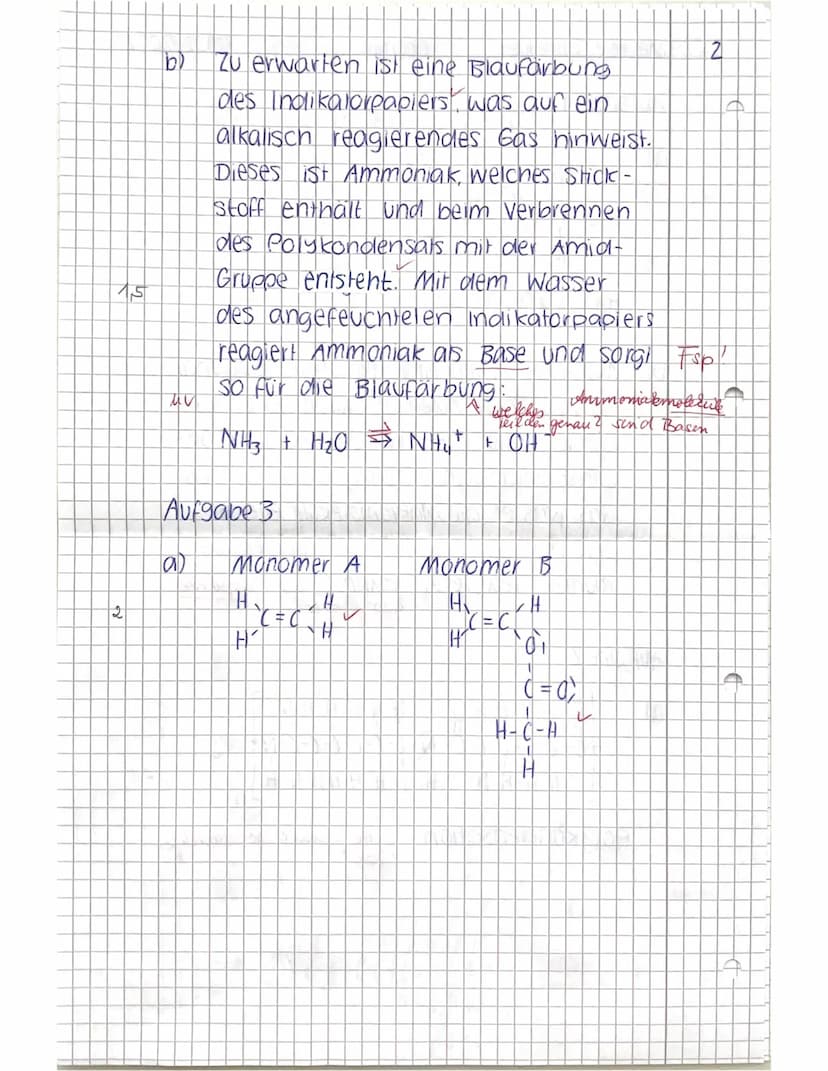 2
b) Zu erwarten ist eine Blaufärbung
des Indikatorpapiers, was auf ein
alkalisch reagierendes Gas hinweist.
Dieses ist Ammoniak, welches Stick-
stoff enthält und beim Verbrennen
des Polykondensats mit der Amid-
Gruppe entsteht. Mit dem Wasser
1,5
des angefeuchteten Indikatorpapiers
reagiert Ammoniak als Base und sorgt Fsp!
so für die Blaufärbung:
uv
welches Ammoniakmoleküle
Teilchen genau? sind Basen
NH₃ + H₂O ⇌ NH₄⁺ + OH⁻
Aufgabe 3
a) Monomer A Monomer B
2
H H H H
C=C C=C
H H H O
C=O
H-C-H
H